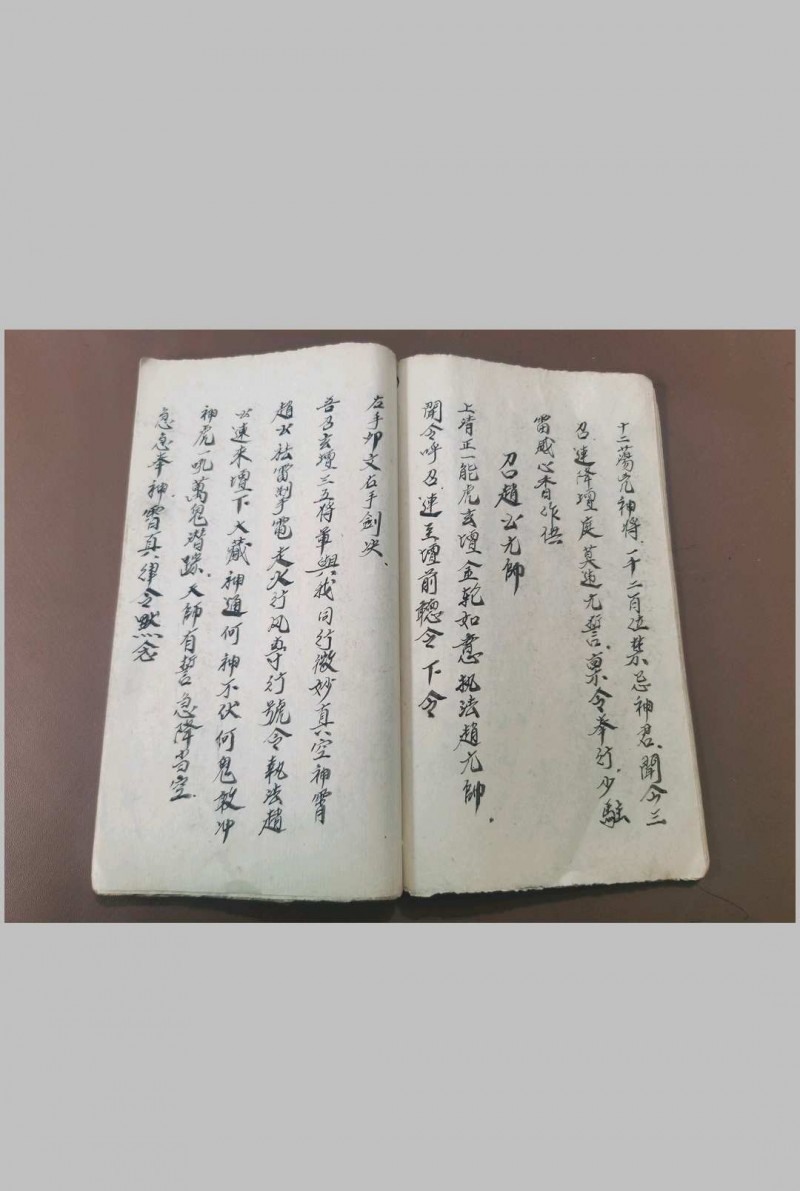 十二蕩兇神將、一千二百位禁忌神君、聞今三
召、速降壇庭莫違元誓、稟令奉行、少駐
雷威心香作供
召趙公元帥
上清正一龍虎玄壇金乾如意執法趙元帥、
聞令呼召、速至壇前聽令下令
左手卯文右手劍決、
吾乃玄壇三五將軍與我同行微妙真空神霄
趙公
電走火行风 行號令執法趙
公速來壇下大藏神通何神不伏何鬼敢冲
神虎一吼萬鬼潛踪、天師有誓急降当空、
急急奉神霄真律令默念